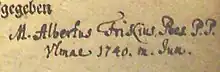 gegeben
M. Albertus Frikius, Poes. P. P.
Ulmae 1740. m. Jun.